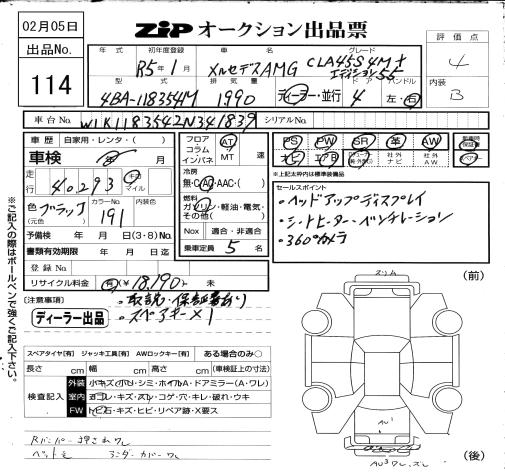 02月05日
ZIP オークション出品票
出品No.
114
年式 初年度登録 車名 グレード
R5年1月 メルセデスAMG CLA45S4M+ エディション55
型式 排気量 ドア ハンドル
4BA-118354M 1990 ディーラー・並行 4 左・右
評価点
4
内装
B
車台No. W1K1183542N341839 シリアルNo.
車歴 自家用・レンタ・( )
車検 年 月
走行 40,293 キロ マイル
色 ブラック (元色) カラーNo. 191 内装色
予備検 年 月 日(3・8)No.
書類有効期限 年 月 日迄
登録No.
リサイクル料金 有(¥18,190)・未
フロア コラム インパネ AT MT 速
冷房 無・C(AC)・AAC・( )
燃料 ガソリン・軽油・電気・その他( )
Nox 適合・非適合
乗車定員 5 名
PS PW SR 革 AW
ナビ エアB 社外ナビ 社外AW
新車時保証書
※上記太枠内は標準装備品
セールスポイント
・ヘッドアップディスプレイ
・シートヒーター・ベンチレーション
・360°カメラ
(注意事項)
・取説・保証書あり
・スペアキー×1
ディーラー出品
※ご記入の際はボールペンで強くご記入下さい。
スペアタイヤ[有] ジャッキ工具[有] AWロックキー[有] ある場合のみ○
長さ cm 幅 cm 高さ cm (車検証上の寸法)
検査記入
外装 小キズ・小凹・シミ・ホイルA・ドアミラー(A・ワレ)
室内 ヨゴレ・キズ・スレ・コゲ・穴・キレ・破れ・ウキ
FW トビ石・キズ・ヒビ・リペア跡・X要ス
Rバンパー押されワレ
アンダーカバーワレ
(前)
スリム
AU1
AU3 ワレ、ズレ
(後)